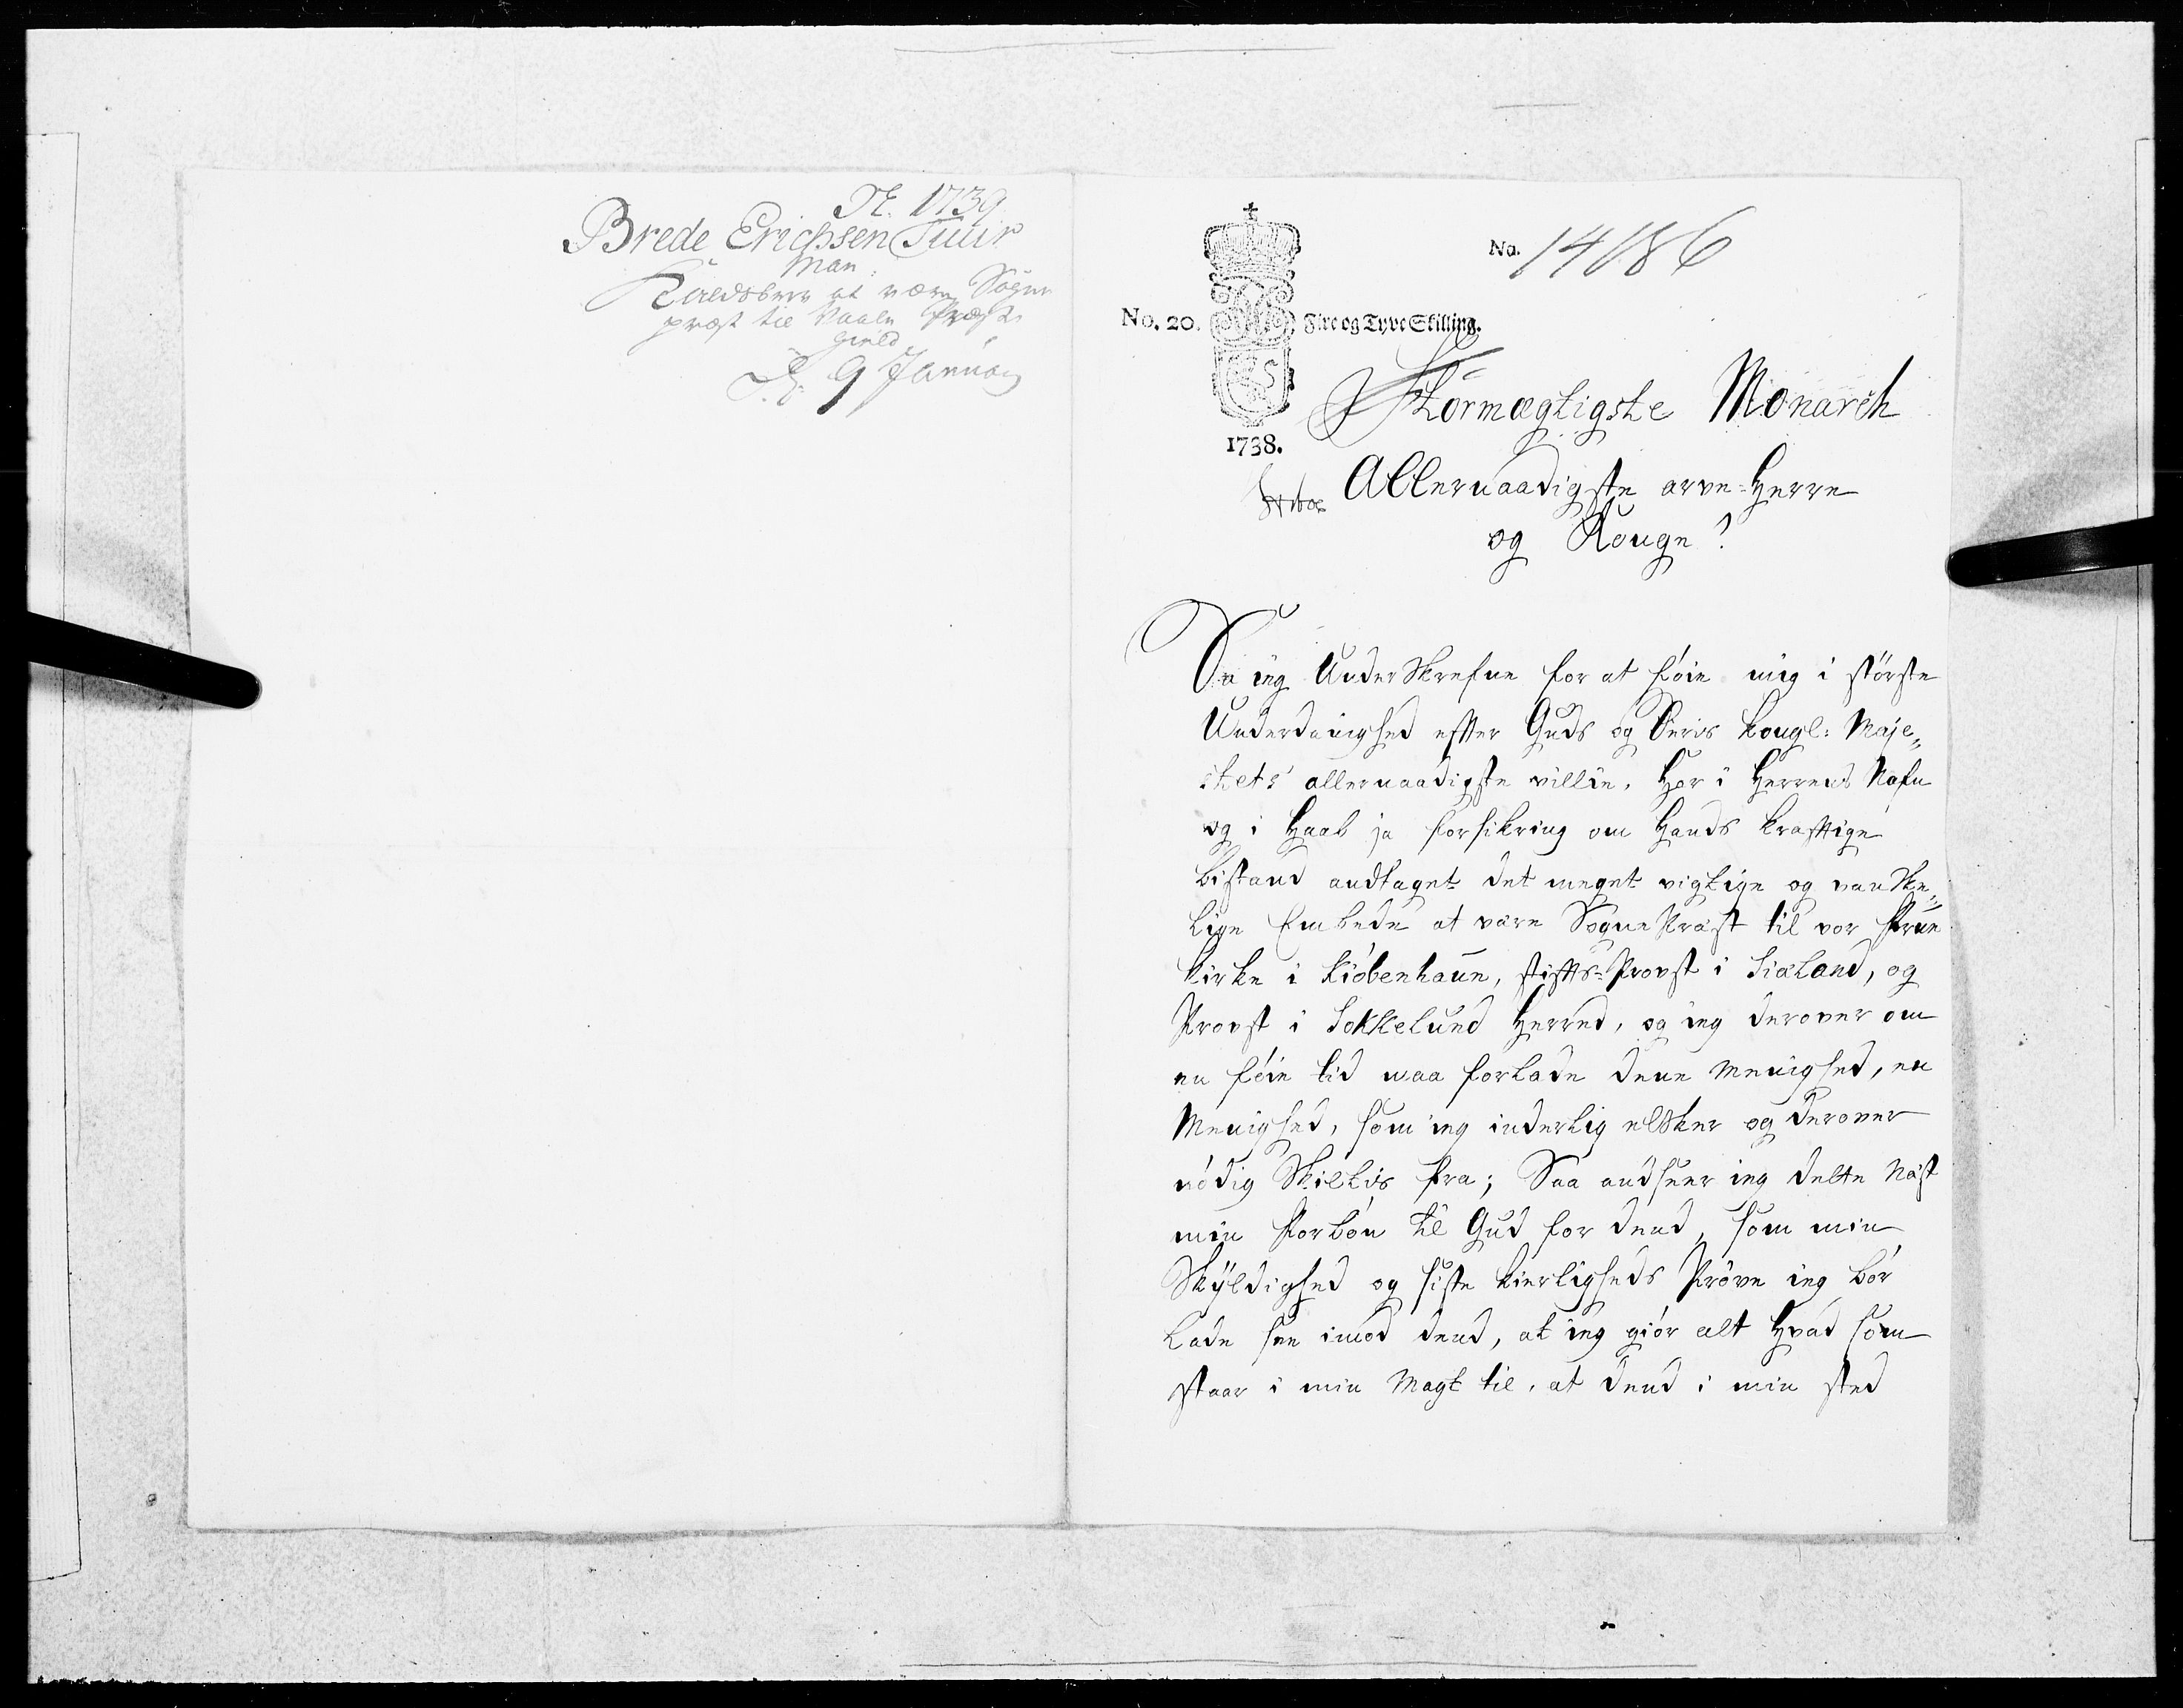 1739
Brede Erichsen Tuur
man:
Kaldsbrev at være Sogne
præst til Vaale Præste
gield
9 Januarij
No. 14186
No. 20. Fire og Tyve Skilling.
1738.
Stormægtigste Monarch
Allernaadigste arve-Herre
og Konge!
Da ieg Underskrefne for at föie mig i störste
Underdanighed efter Guds og Deris Kongl: Maje„
stets allernaadigste villie, Har i Herrens Nafn
og i Haab ja forsikring om Hands kraftige
bistand andtaget det meget vigtige og vanske„
lige Embede at være Sogne Præst til vor Frue
kirke i Kiöbenhaun, stifts-Provst i Siæland, og
Provst i Sokkelund Herred, og ieg derover om
en föie tid maa forlade denne Menighed, en
Menighed, som ieg inderlig elsker og derover
nödig Skillis fra; Saa andseer ieg dette Næst
min Forbön til Gud for dend, som min
Skÿldighed og siste kierligheds Pröve ieg bör
lade see imod dend, at ieg giör alt Hvad som
staar i min Magt til, at dend i min sted